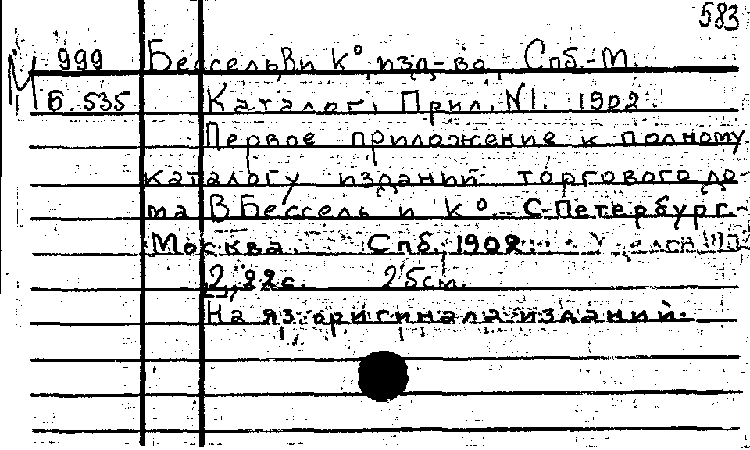 583
999 Бессель В и К° изд-во, Спб.-М.
Б. 535 Каталог. Прил. N1. 1902.
Первое приложение к полному
каталогу изданий торгового до-
ма В Бессель и К° С-Петербург-
Москва. Спб, 1902.
2,22с. 25см.
На яз. оригинала изданий.